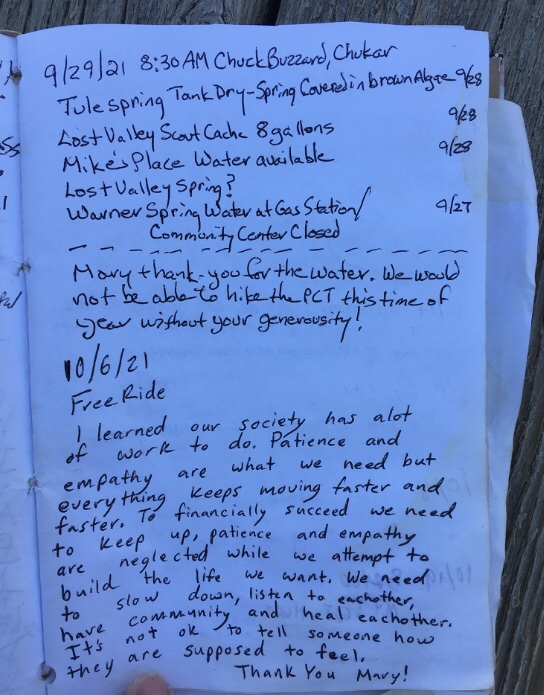 9/29/21 8:30 AM Chuck Buzzard, Chukar
Tule spring Tank Dry-Spring Covered in brown Algae 9/28
Lost Valley Scout Cache 8 gallons 9/28
Mike's Place Water available 9/28
Lost Valley Spring?
Warner Spring Water at Gas Station/ 9/27
Community Center Closed
Mary thank-you for the water. We would
not be able to hike the PCT this time of
year without your generousity!
10/6/21
Free Ride
I learned our society has alot
of work to do. Patience and
empathy are what we need but
everything keeps moving faster and
faster. To financially succeed we need
to keep up, patience and empathy
are neglected while we attempt to
build the life we want. We need
to slow down, listen to eachother,
have community, and heal eachother.
It's not ok to tell someone how
they are supposed to feel.
Thank You Mary!